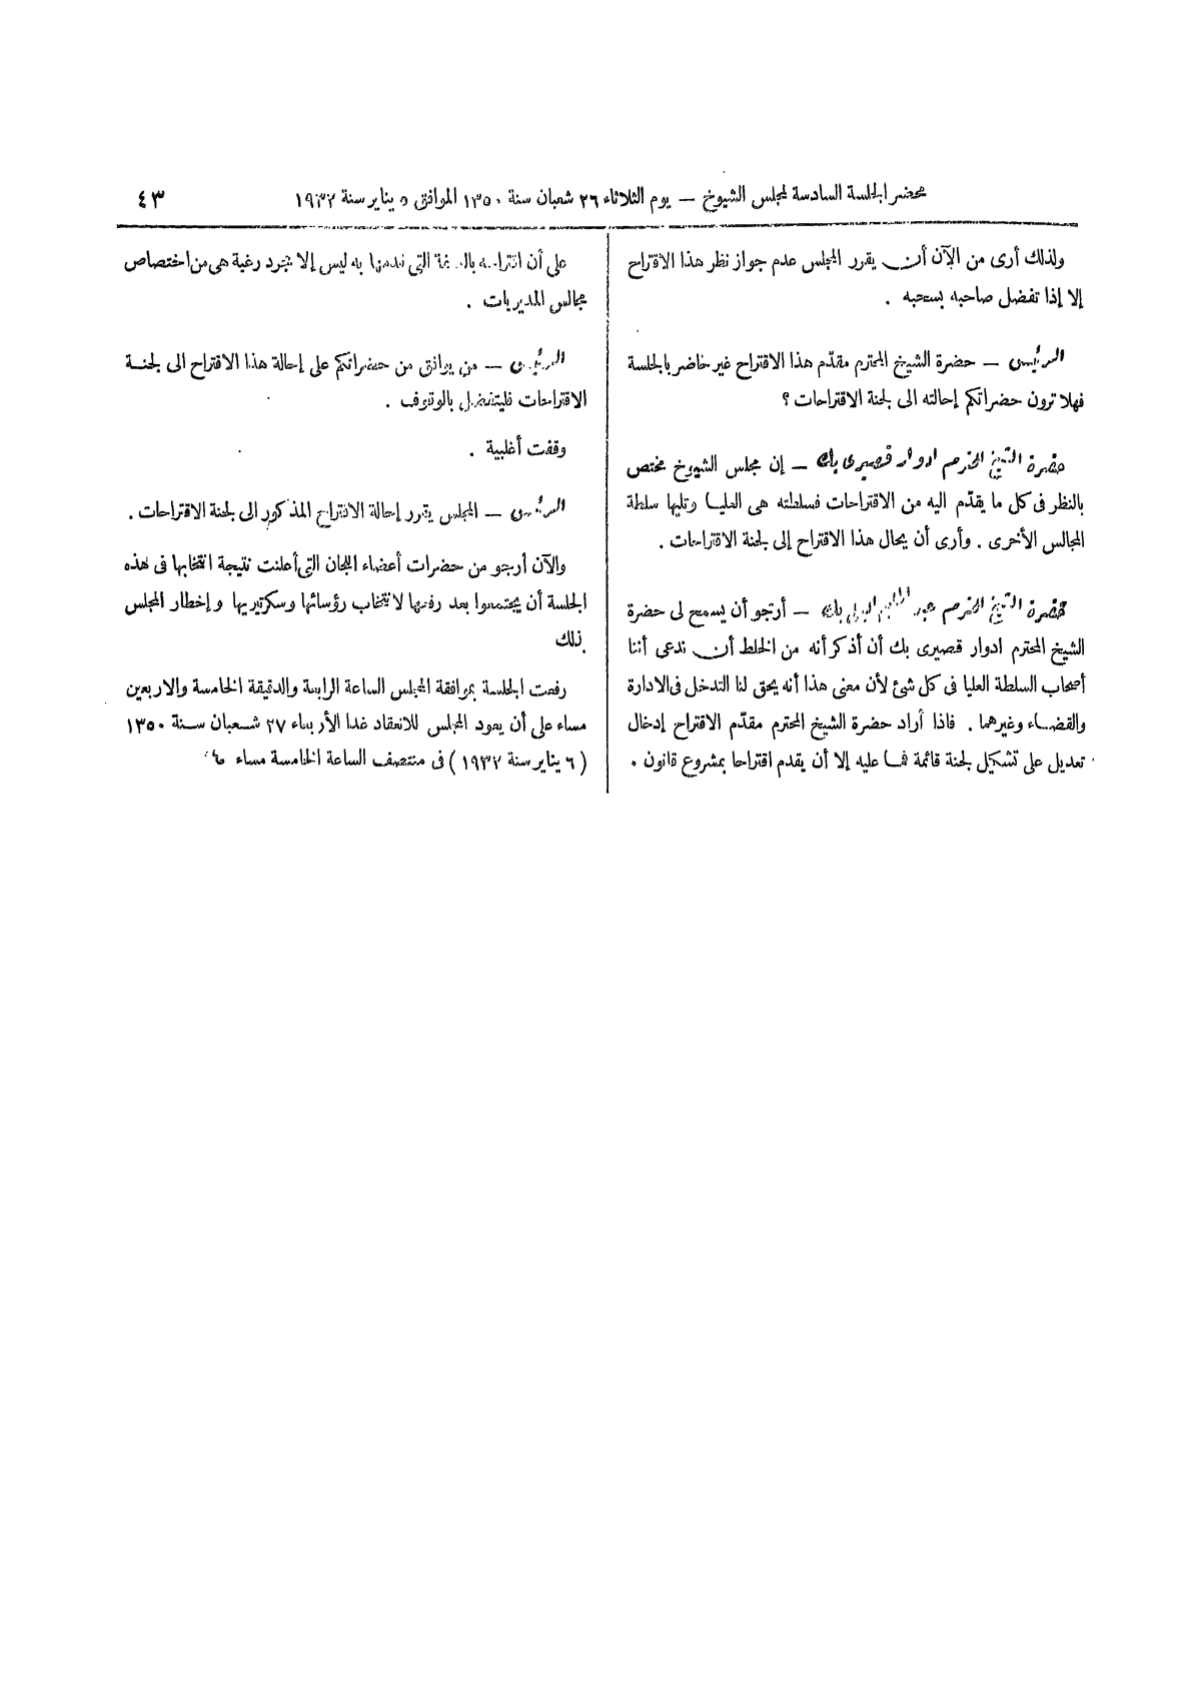 محضر الجلسة السادسة لمجلس الشيوخ — يوم الثلاثاء ٢٦ شعبان سنة ١٣٥٠ الموافق ٥ يناير سنة ١٩٣٢
٤٣
ولذلك أرى من الآن أن يقرر المجلس عدم جواز نظر هذا الاقتراح
إلا إذا تفضل صاحبه بسحبه .
الرئيس — حضرة الشيخ المحترم مقدّم هذا الاقتراح غير حاضر بالجلسة
فهلا ترون حضراتكم إحالته الى لجنة الاقتراحات ؟
حضرة الشيخ المحترم ادوار قصيرى بك — إن مجلس الشيوخ مختص
بالنظر فى كل ما يقدّم اليه من الاقتراحات فسلطته هى العليا وتليها سلطة
المجالس الأخرى . وأرى أن يحال هذا الاقتراح إلى لجنة الاقتراحات .
حضرة الشيخ المحترم عبد بك — أرجو أن يسمح لى حضرة
الشيخ المحترم ادوار قصيرى بك أن أذكر أنه من الخلط أن ندعى أننا
أصحاب السلطة العليا فى كل شئ لأن معنى هذا أنه يحق لنا التدخل فى الادارة
والقضاء وغيرهما . فاذا أراد حضرة الشيخ المحترم مقدّم الاقتراح إدخال
تعديل على تشكيل لجنة قائمة فما عليه إلا أن يقدم اقتراحا بمشروع قانون .
على أن اقتراحه التى قدمها به ليس إلا مجرد رغبة هى من اختصاص
مجالس المديريات .
الرئيس — من يوافق من حضراتكم على إحالة هذا الاقتراح الى لجنة
الاقتراحات فليتفضل بالوقوف .
وقفت أغلبية .
الرئيس — المجلس يقرر إحالة الاقتراح المذكور الى لجنة الاقتراحات .
والآن أرجو من حضرات أعضاء اللجان التى أعلنت نتيجة انتخابها فى هذه
الجلسة أن يجتمعوا بعد رفعها لانتخاب رؤسائها وسكرتيريها وإخطار المجلس
بذلك
رفعت الجلسة بموافقة المجلس الساعة الرابعة والدقيقة الخامسة والاربعين
مساء على أن يعود المجلس للانعقاد غدا الأربعاء ٢٧ شعبان سنة ١٣٥٠
( ٦ يناير سنة ١٩٣٢ ) فى منتصف الساعة الخامسة مساء